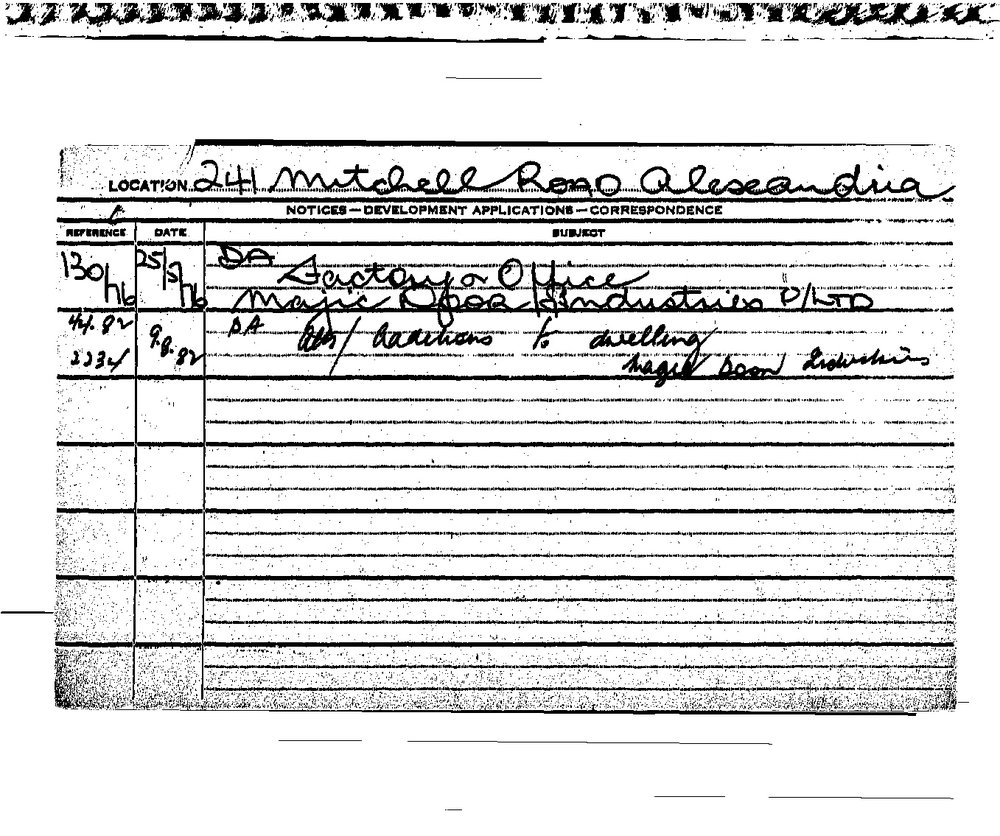 LOCATION 241 Mitchell Road Alexandria
NOTICES — DEVELOPMENT APPLICATIONS — CORRESPONDENCE
REFERENCE DATE SUBJECT
130/76 25/5/76 DA
Factory & Office
Majic Door Industries P/LTD
44.82 9.8.82 DA Additions to dwelling
2234 Magic Door Industries